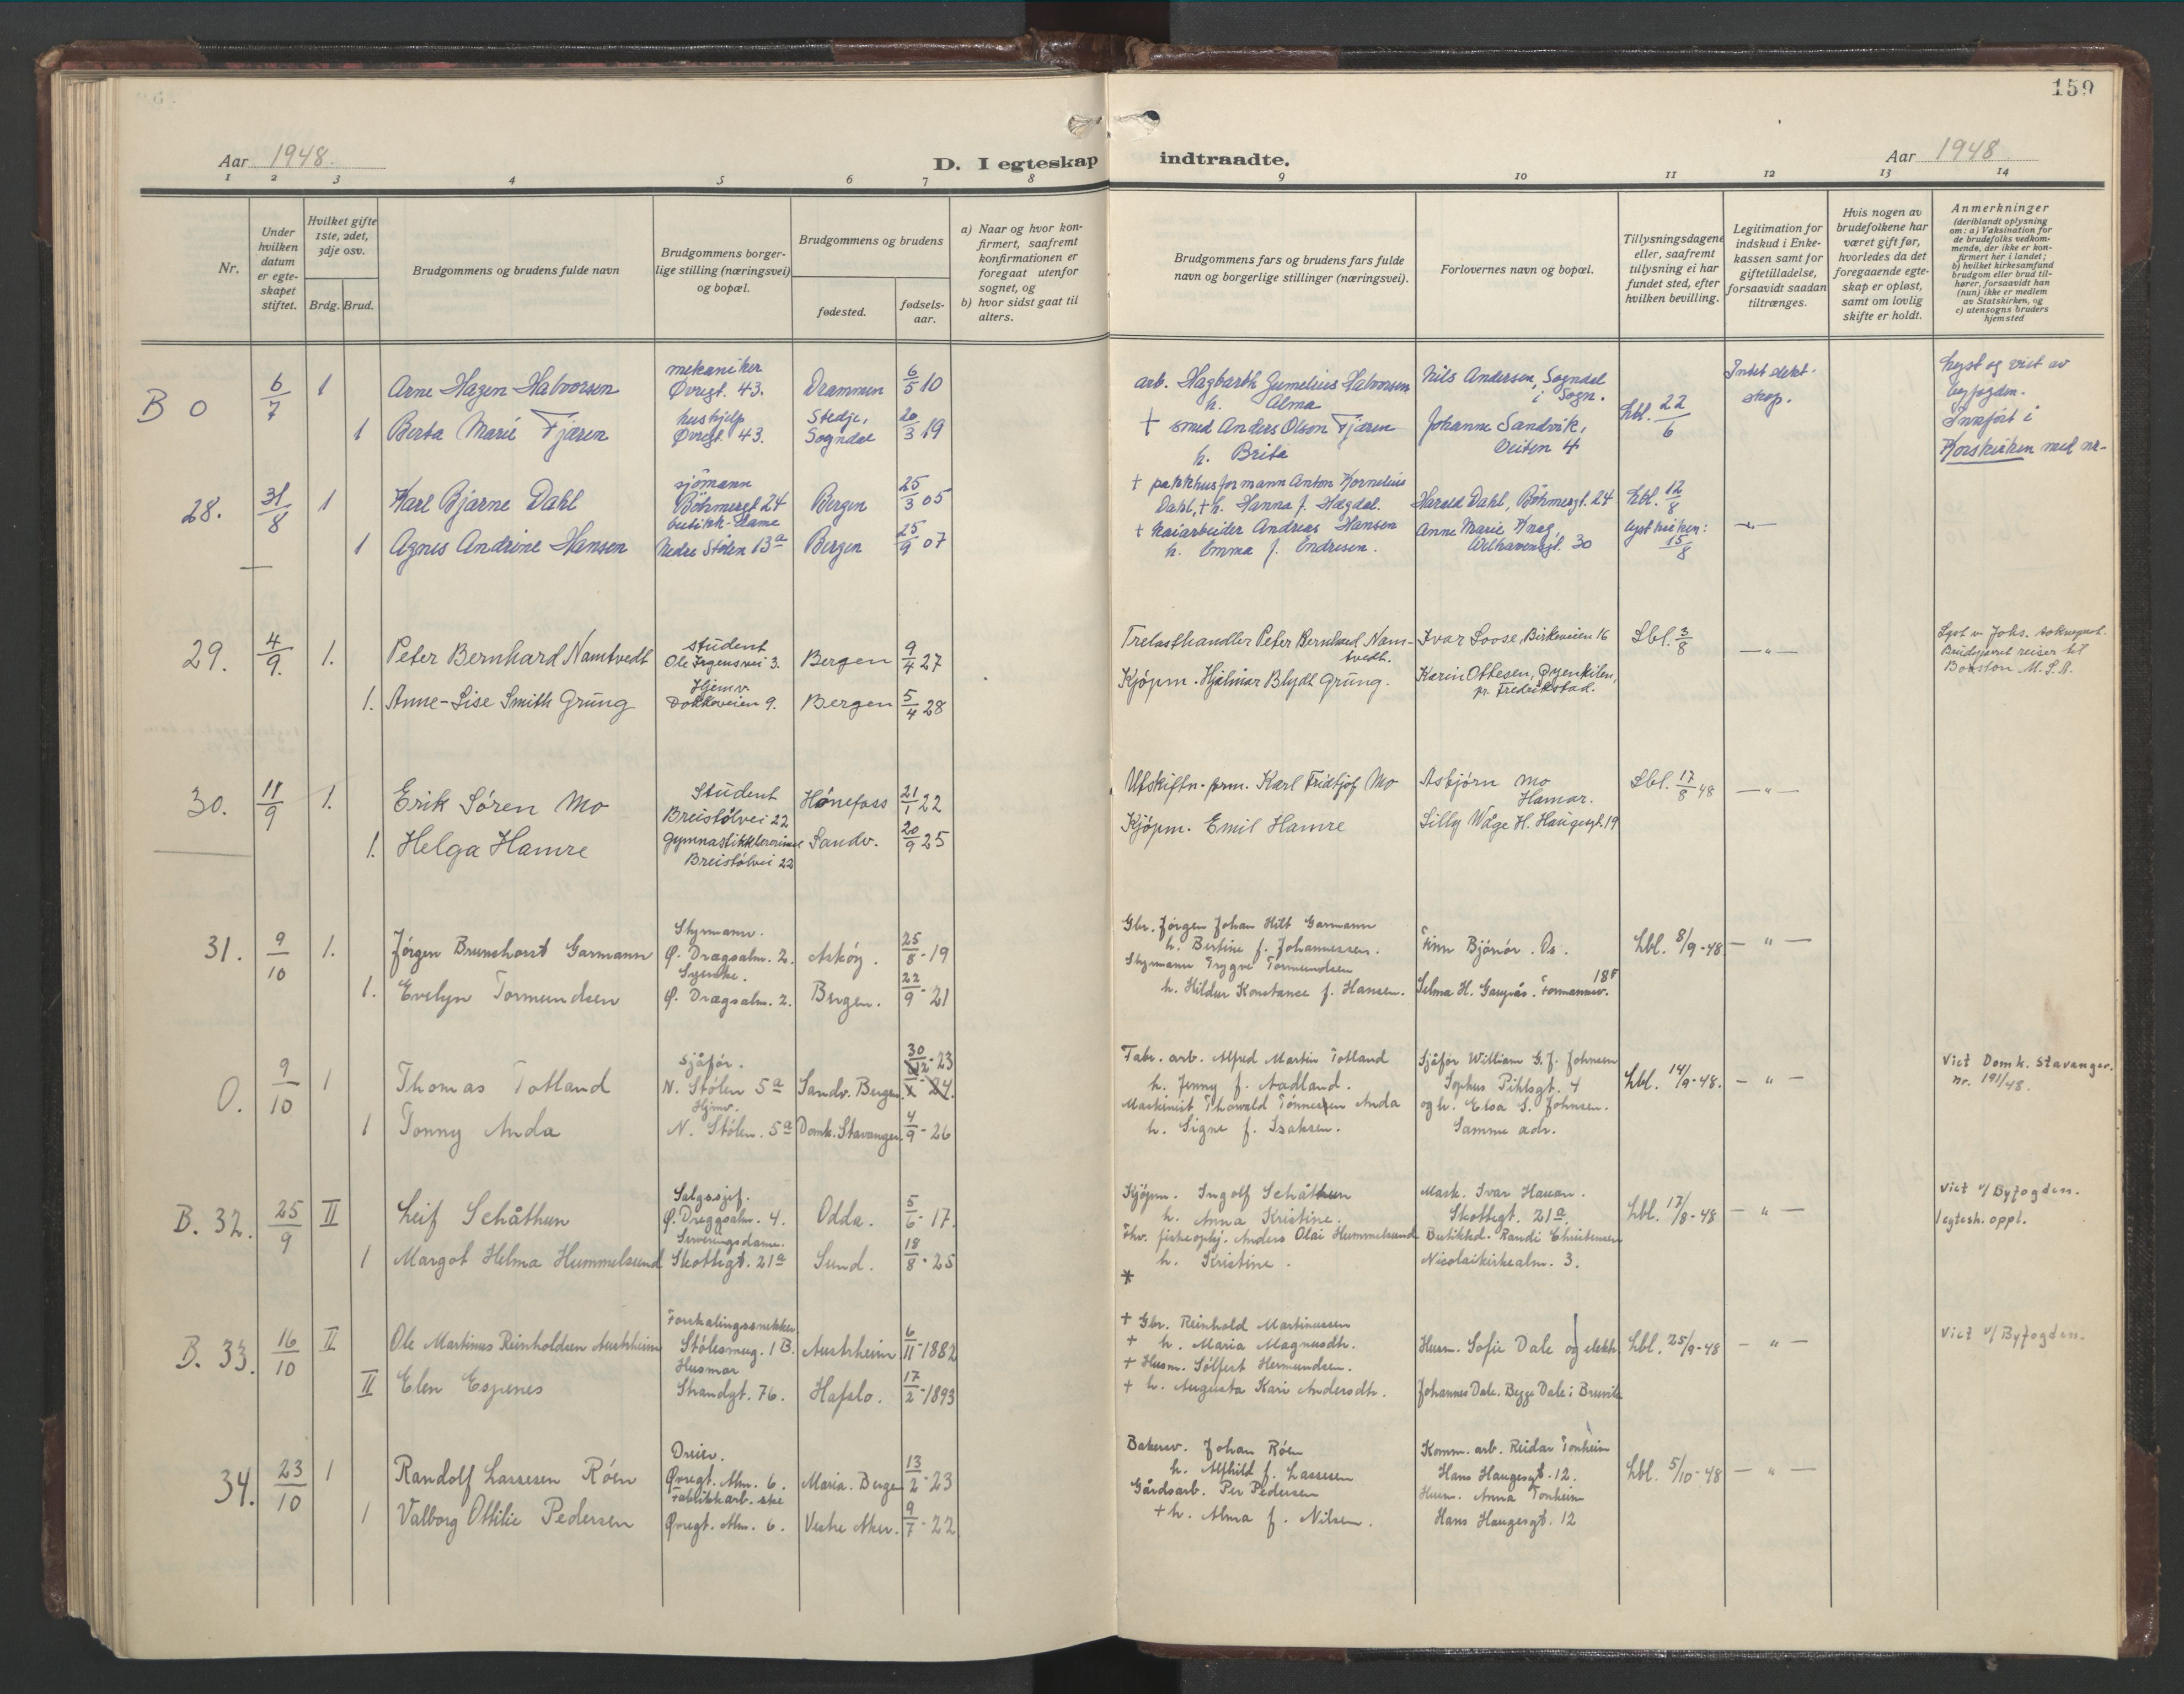 159
Aar 1948.
D. I egteskap indtraadte.
Aar 1948
1 2 3 4 5 6 7 8 9 10 11 12 13 14
Nr.
Under hvilken datum er egteskapet stiftet.
Hvilket gifte 1ste, 2det, 3dje osv.
Brdg. Brud.
Brudgommens og brudens fulde navn
Brudgommens borgerlige stilling (næringsvei) og bopæl.
Brudgommens og brudens
fødested.
fødselsaar.
a) Naar og hvor konfirmert, saafremt konfirmationen er foregaat utenfor sognet, og
b) hvor sidst gaat til alters.
Brudgommens fars og brudens fars fulde navn og borgerlige stillinger (næringsvei).
Forlovernes navn og bopæl.
Tillysningsdagene eller, saafremt tillysning ei har fundet sted, efter hvilken bevilling.
Legitimation for indskud i Enkekassen samt for giftetilladelse, forsaavidt saadan tiltrænges.
Hvis nogen av brudefolkene har været gift før, hvorledes da det foregaaende egteskap er opløst, samt om lovlig skifte er holdt.
Anmerkninger
(deriblandt oplysning om: a) Vaksination for de brudefolks vedkommende, der ikke er konfirmert her i landet;
b) hvilket kirkesamfund brudgom eller brud tilhører, forsaavidt han (hun) ikke er medlem av Statskirken, og
c) utensogns bruders hjemsted
B 0 6/7 1 Arne Hagen Halvorsen
mekaniker
Øvregt. 43. Drammen 6/5 10
arb. Hagbarth Gumelius Halvorsen
h. Alma
Nils Andersen, Sogndal
i Sogn.
Lbl. 22/6
Intet slektskap.
Lyst og viet av
byfogden.
Innført i
Korskirken med nr-
1 Berta Marie Fjæren
hushjelp
Øvregt. 43. Stedje,
Sogndal 20/3 19
† smed Anders Olson Fjæren
h. Brita
Johanne Sandvik,
Veiten 4
28. 31/8 1 Karl Bjarne Dahl
sjømann
Böhmergt 24 Bergen 25/3 05
† pakkhusformann Anton Kornelius
Dahl, † h. Hanna f. Hægdal.
Harald Dahl, Böhmergt. 24 Lbl. 12/8
1 Agnes Andrine Hansen
butikk-dame
Nedre Stølen 13a Bergen 25/9 07
† kaiarbeider Andreas Hansen
h. Emma f. Endresen.
Anne Marie Krag,
Welhavensgt. 30
lyst kirken: 15/8 — " —
29. 4/9. 1. Peter Bernhard Namtvedt
student
Ole Irgensvei 3. Bergen 9/4 27
Trelasthandler Peter Bernhard Namtvedt.
Ivar Loose, Birkeveien 16 Lbl. 3/8 — " —
Lyst v. Johs. sokneprest.
Brudeparet reiser til
Boston U.S.A.
1. Anne-Lise Smith Grung
Hjemv.
Dokkeveien 9. Bergen 5/4 28
Kjøpm. Hjalmar Blydt Grung.
Karin Ottesen, Øyenkilen,
pr. Fredrikstad.
30. 11/9 1. Erik Søren Mo
Student
Breistølvei 22 Hønefoss 21/1 22
Utskiftn.-form. Karl Fridtjof Mo
Asbjørn Mo
Hamar.
Lbl. 17/8 48 — " —
1. Helga Hamre
gymnastikklærerinne
Breistølvei 22 Sandv. 20/9 25
Kjøpm. Emil Hamre
Lilly Wåge H. Haugesgt. 19
31. 9/10 1. Jørgen Brunchorst Garmann
Styrmann.
Ø. Dragsalm. 2. Askøy. 25/8-19
Gbr. Jørgen Johan Hilt Garmann
h. Bertine f. Johannessen.
Finn Bjånør. Os. Lbl. 8/9-48 — " —
1. Evelyn Tormundsen
Syerske.
Ø. Dragsalm. 2. Bergen. 22/9-21
Styrmann Trygve Tormundsen
h. Hildur Konstance f. Hansen.
Selma H. Gaupås. Formannsv. 18
0. 9/10 1 Thomas Totland
Sjåfør.
N. Stølen 5a Sandv. Bergen. 30/12-23
Fabr. arb. Alfred Martin Totland
h. Jenny f. Aadland.
Sjåfør William G. J. Johnsen
Sophus Pihlsgt. 4
Lbl. 14/9-48. — " —
Viet Domk. Stavanger.
nr. 191/48.
1 Tonny Anda
Hjemv.
N. Stølen. 5a Domk. Stavanger. 4/9-26
Maskinist Thorvald Tønnesen Anda
h. Signe f. Isaksen.
og h. Elsa S. Johnsen.
Samme adr.
B. 32. 25/9 II Leif Schåthun
Salgssjef.
Ø. Dreggsalm. 4. Odda. 5/6-17.
Kjøpm. Ingolf Schåthun
h. Anna Kristine.
Mask. Ivar Hauan.
Skottegt. 21a.
Lbl. 17/8-48 — " —
Viet v/Byfogden.
1 egtesk. oppl.
1 Margot Helma Hummelsund
Serveringsdame.
Skottegt. 21a Sund. 18/8-25
Thv. fiskeoppkj. Anders Olai Hummelsund
h. Kristine.
Butikkd. Randi Christensen
Nicolaikirkealm. 3.
*
B. 33. 16/10 II Ole Martinus Reinholdsen Austrheim
Forskalingssnekker
Stølesmug. 1 B. Austrheim 6/11-1882
+ Gbr. Reinhold Martinussen
+ h. Maria Magnusdtr.
Husm. Sofie Dale og elektr. Lbl. 25/9-48 — " —
Viet v/Byfogden.
II Elen Espenes
Husmor
Strandgt. 76. Hafslo. 17/2-1893
+ Husm. Sølfest Hermundsen.
+ h. Augusta Kari Andersdtr.
Johannes Dale. Begge Dale i Bruvik
34. 23/10 1 Randolf Lassesen Röen
Dreier.
Øvregt. Alm. 6. Maria. Bergen 13/2-23
Bakersv. Johan Röen
h. Alfhild f. Lassesen
Komm. arb. Reidar Tonheim
Hans Haugesgt. 12.
Lbl. 5/10-48 — " —
1 Valborg Ottilie Pedersen
Fabrikkarb.ske
Øvregt. Alm. 6. Vestre Aker. 9/7-22
Gårdsarb. Per Pedersen
+ h. Alma f. Nilsen.
Husm. Anna Tonheim
Hans Haugesgt. 12